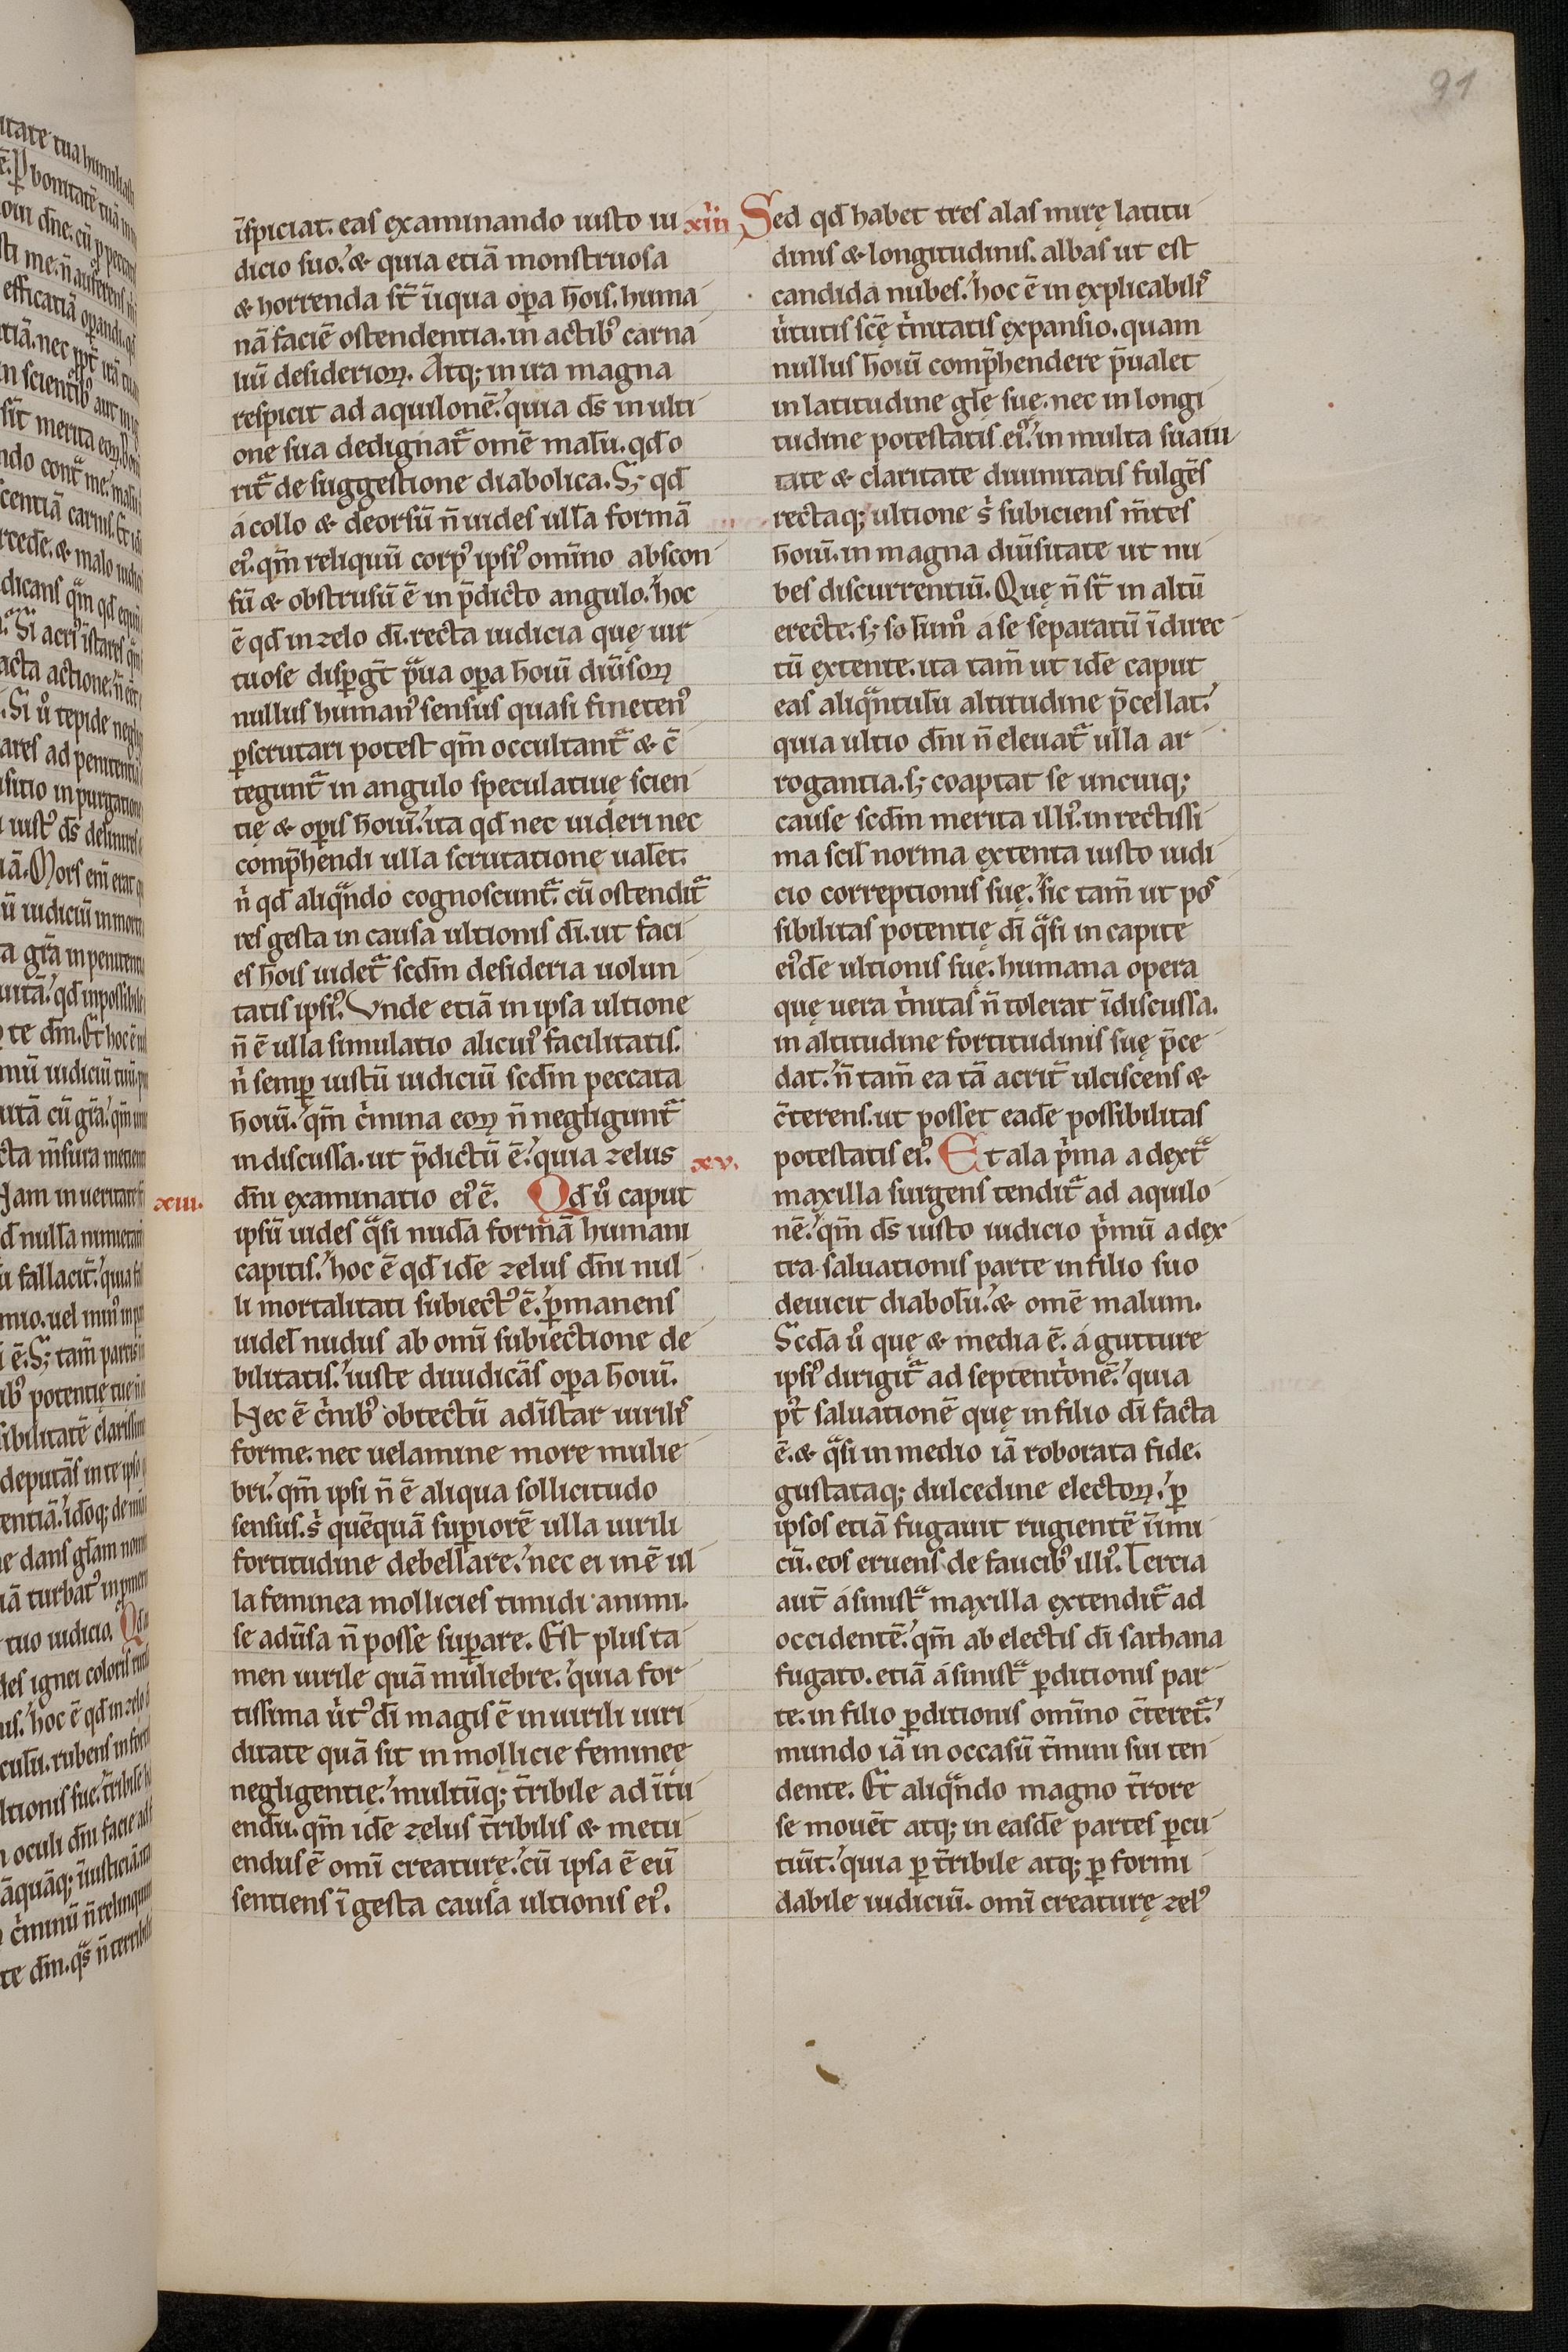 91
īspiciat. eas examinando iusto iu
dicio suo. & quia etiā monstruosa
& horrenda st̄ iniqua oꝑa hōis. huma
nā faciē ostendentia. in actibꝰ carna
liū desiderioꝝ. Atq; in ira magna
respicit ad aquilonē. quia ds̄ in ulti
one sua dedignat᷑ omē malū. qd̄ o
rit᷑ de suggestione diabolica. S; qd̄
a collo & deorsū n̄ uides ullā formā
eiꝰ. qm̄ reliquū corpꝰ ipsiꝰ omīno abscon
sū & obstrusū ē in p̄dicto angulo. hoc
ē qd̄ in zelo dī. recta iudicia quę uir
tuose disꝑgt̄ praua oꝑa hoīū diūsoꝝ
nullus humanꝰ sensus quasi finetenꝰ
ꝑscrutari potest qm̄ occultant᷑ & c̄
tegunt᷑ in angulo speculatiuę scien
tię & oꝑis hoīū. ita qd̄ nec uideri nec
comp̄hendi ulla scrutatione ualet.
n̄ qd̄ aliqͣndo cognoscunt᷑. cū ostendit᷑
res gesta in causa ultionis dī. ut faci
es hōis uidet᷑ scdm̄ desideria uolun
tatis ipsiꝰ. Vnde etiā in ipsa ultione
n̄ ē ulla simulatio alicuiꝰ facilitatis.
n̄ semꝑ iustū iudiciū scdm̄ peccata
hoīū. qm̄ cͥmina eoꝝ n̄ negligunt᷑
in discussa. ut p̄dictū ē. quia zelus
xiii. dn̄i examinatio eiꝰ ē. Qd̄ uͦ caput
ipsū uides qͣsi nudā formā humani
capitis. hoc ē qd̄ idē zelus dn̄i nul
li mortalitati subiectꝰ ē. ꝑmanens
uidel̄ nudus ab omī subiectione de
bilitatis. iuste diiudicās oꝑa hoīū.
Nec ē cͥnibꝰ obtectū ad īstar uirilis
forme. nec uelamine more mulie
bri. qm̄ ipsi n̄ ē aliqua sollicitudo
sensus. s; quēquā suꝑiorē ulla uirili
fortitudine debellare. nec ei inē ul
la feminea mollicies timidi animi.
se adūsa n̄ posse suꝑare. Est plus ta
men uirile quā muliebre. quia for
tissima uͥtꝰ dī magis ē in uirili uiri
ditate quā sit in mollicie feminęę
negligentię. multūq; tr̄ibile ad ītu
endū. qm̄ idē zelus tr̄ibilis & metu
endus ē omī creaturę. cū ipsa ē eū
sentiens ī gesta causa ultionis eiꝰ.
xiiii Sed qd̄ habet tres alas mirę latitu
dinis & longitudinis. albas ut est
candida nubes. hoc ē in explicabilis
uͥtutis scę tͥnitatis expansio. quam
nullus hoīū comp̄hendere p̄ualet
in latitudine glę̄ suę. nec in longi
tudine potestatis eiꝰ. in multa suaui
tate & claritate diuinitatis fulgēs
rectaq; ultione s; subiciens m̄tes
hoīū. in magna diūsitate ut nu
bes discurrentiū. Quę n̄ st̄ in altū
erecte. s; so lūmͦ a se separatū ī direc
tū extente. ita tam̄ ut idē caput
eas aliqͣntulū altitudine p̄cellat.
quia ultio dn̄i n̄ eleuat᷑ ulla ar
rogantia. s; coaptat se unicuiq;
cause scdm̄ merita illiꝰ. in rectissi
ma scil̄ norma extenta iusto iudi
cio correptionis suę. sic tam̄ ut pos
sibilitas potentię dī qͣsi in capite
eiꝰdē ultionis suę. humana opera
quę uera tͥnitas n̄ tolerat īdiscussa.
in altitudine fortitudinis suę p̄ce
dat. n̄ tam̄ ea tā acrit̄ ulciscens &
c̄terens. ut posset eadē possibilitas
xv. potestatis eiꝰ. Et ala pͥma a dextͣ
maxilla surgens tendit᷑ ad aquilo
nē. qm̄ ds̄ iusto iudicio pͥmū a dex
tra saluationis parte in filio suo
deuicit diabolū. & omē malum.
Scda uͦ quę & media ē. a gutture
ipsiꝰ dirigit᷑ ad septentͥonē. quia
pt̄ saluationē quę in filio dī facta
ē. & qͣsi in medio iā roborata fide.
gustataq; dulcedine electoꝝ. ꝑ
ipsos etiā fugauit rugientē inimi
cū. eos eruens de faucibꝰ illiꝰ. Tercia
aut̄ a sinistͣ maxilla extendit᷑ ad
occidentē. qm̄ ab electis dī sathana
fugato. etiā a sinistͣ ꝑditionis par
te. in filio ꝑditionis omīno c̄teret᷑.
mundo iā in occasū tm̄ini sui ten
dente. Et aliqͣndo magno tr̄rore
se mouēt atq; in easdē partes ꝑcu
tiūt. quia ꝑ tr̄ibile atq; ꝑ formi
dabile iudiciū. omī creaturę zelꝰ